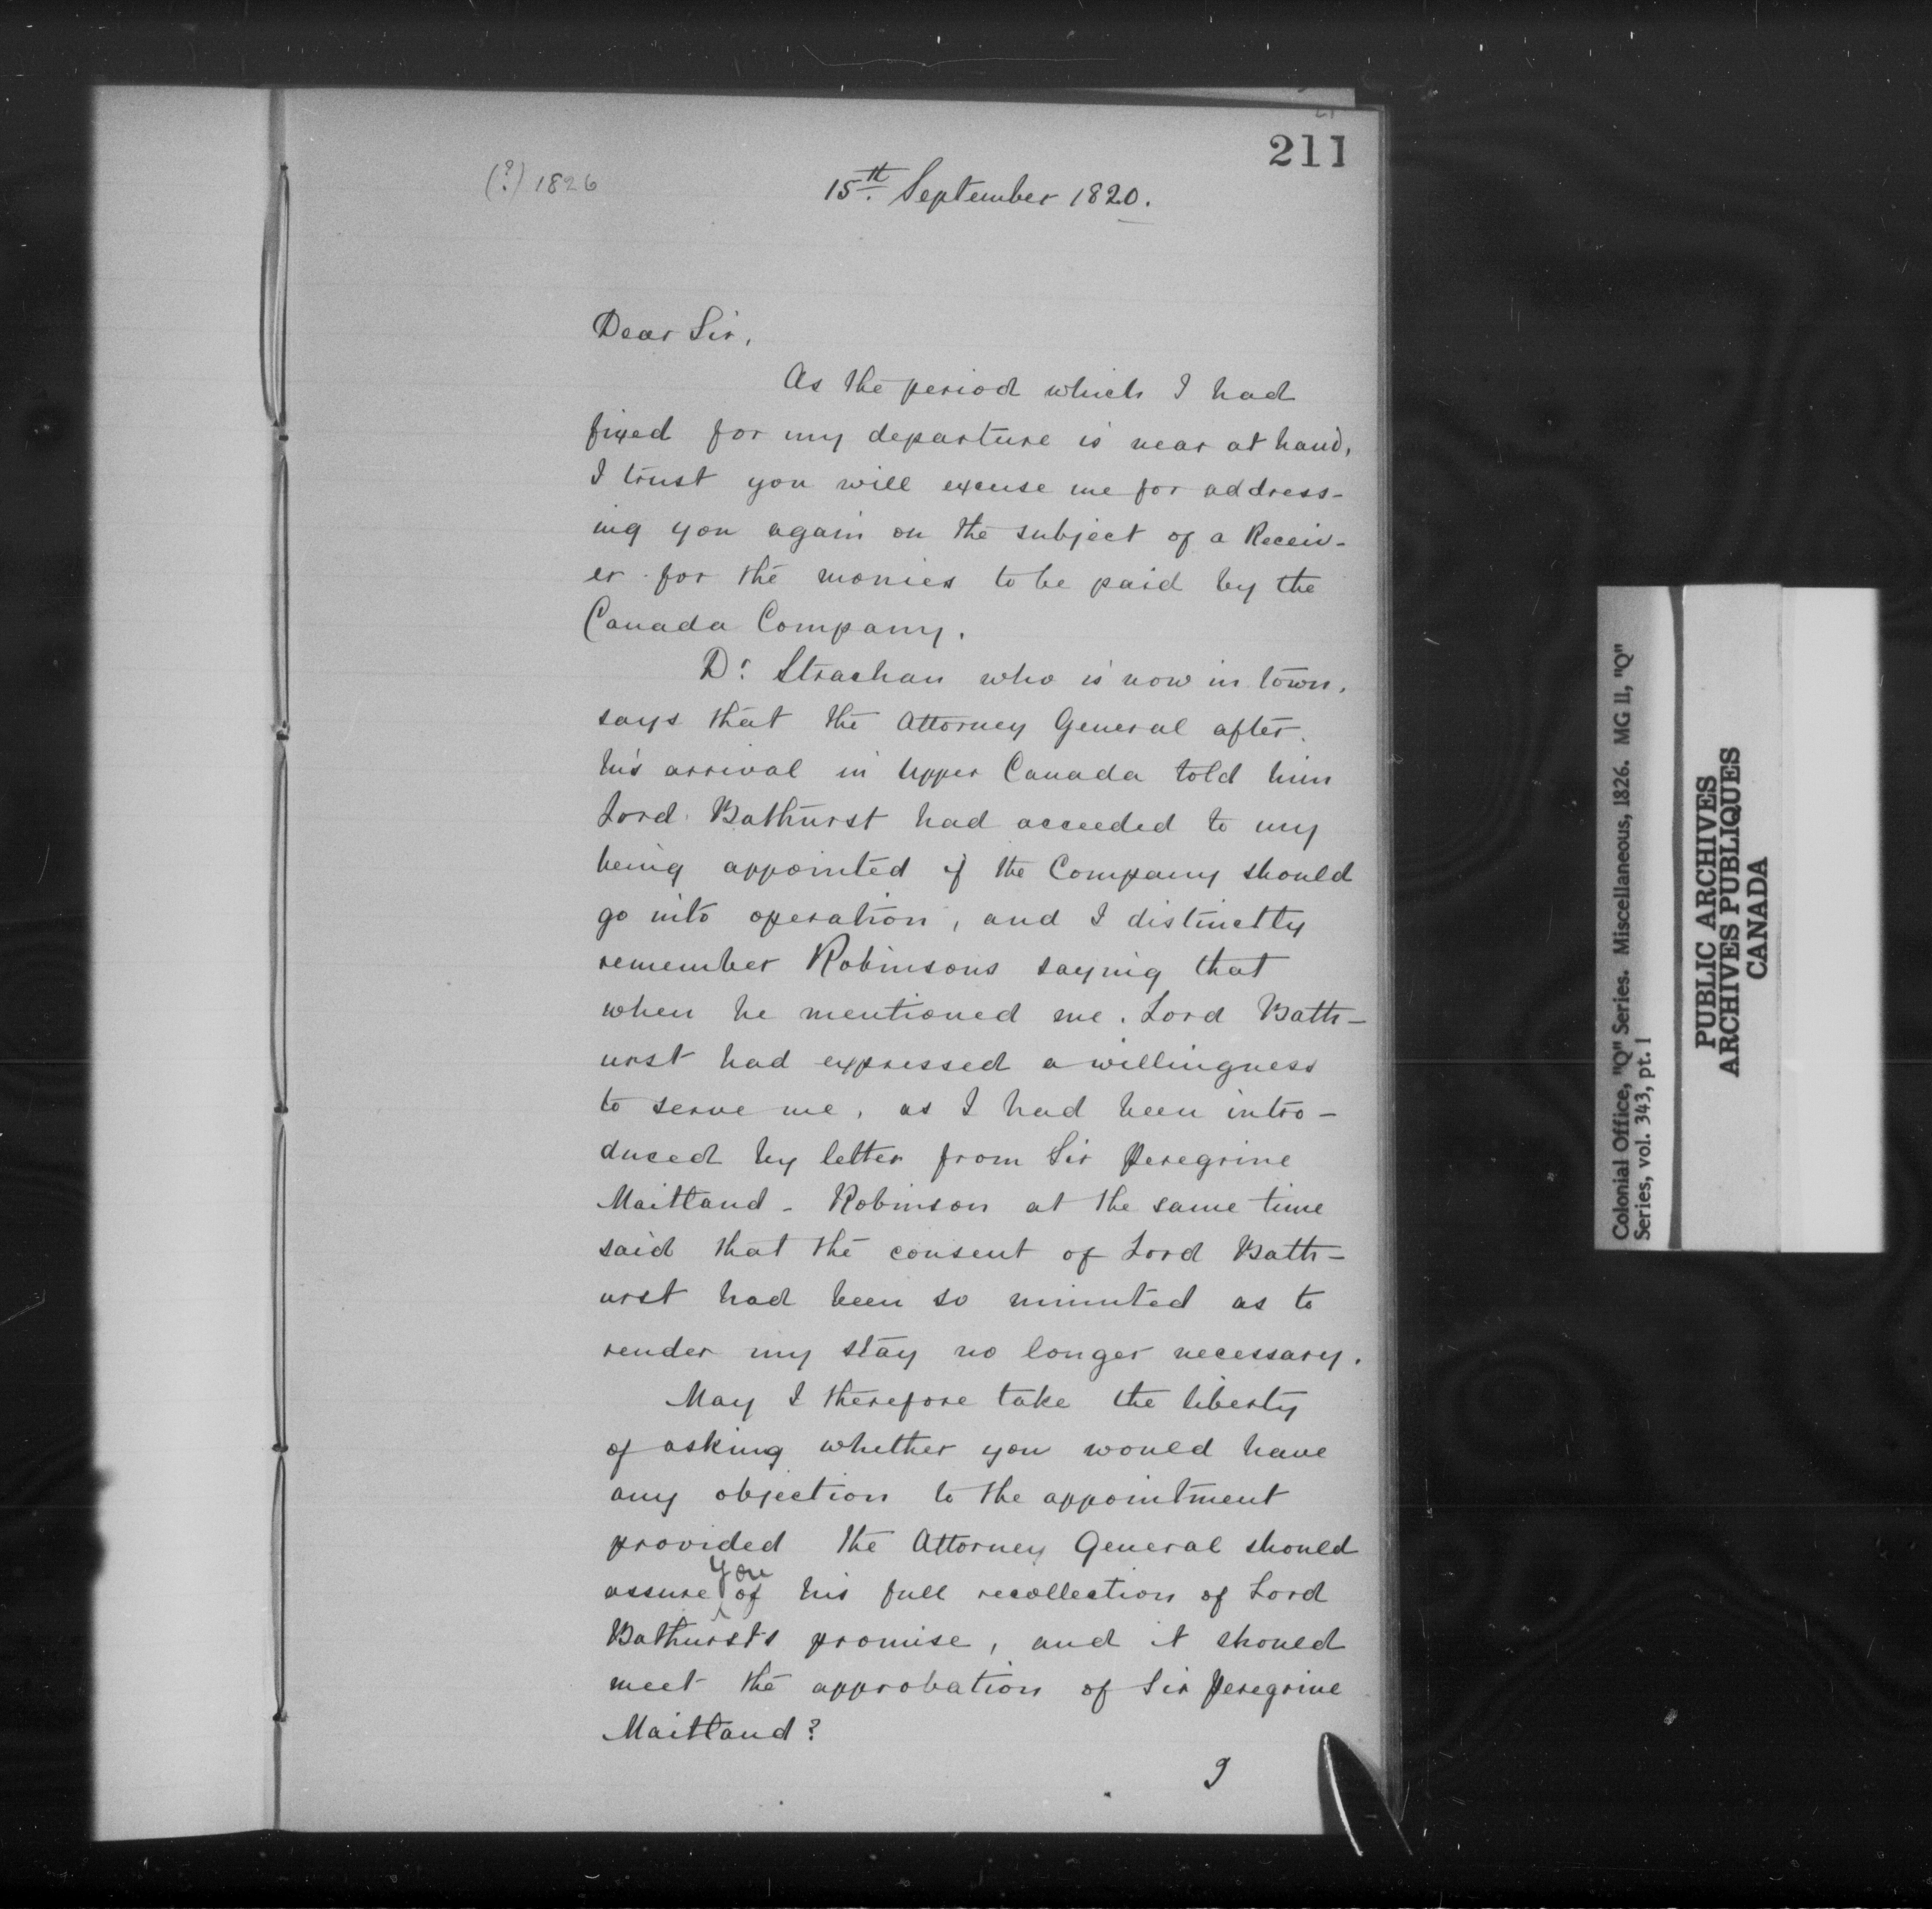 211
(?) 1826
15th. September 1820.
Dear Sir,
As the period which I had
fixed for my departure is near at hand,
I trust you will excuse me for address-
ing you again on the subject of a Receiv-
er for the monies to be paid by the
Canada Company.
Dr. Strachan who is now in town,
says that the Attorney General after
his arrival in Upper Canada told him
Lord Bathurst had acceeded to my
being appointed if the Company should
go into operation, and I distinctly
remember Robinsons saying that
when he mentioned me. Lord Bath-
urst had expressed a willingness
to serve me, as I had been intro-
duced by letter from Sir Peregrine
Maitland - Robinson at the same time
said that the consent of Lord Bath-
urst had been so minuted as to
render my stay no longer necessary.
May I therefore take the liberty
of asking whether you would have
any objection to the appointment
provided the Attorney General should
assure you of his full recollection of Lord
Bathurst's promise, and it should
meet the approbation of Sir Peregrine
Maitland?
I
Colonial Office, "Q" Series. Miscellaneous, 1826. MG 11, "Q"
Series, vol. 343, pt. 1
PUBLIC ARCHIVES
ARCHIVES PUBLIQUES
CANADA